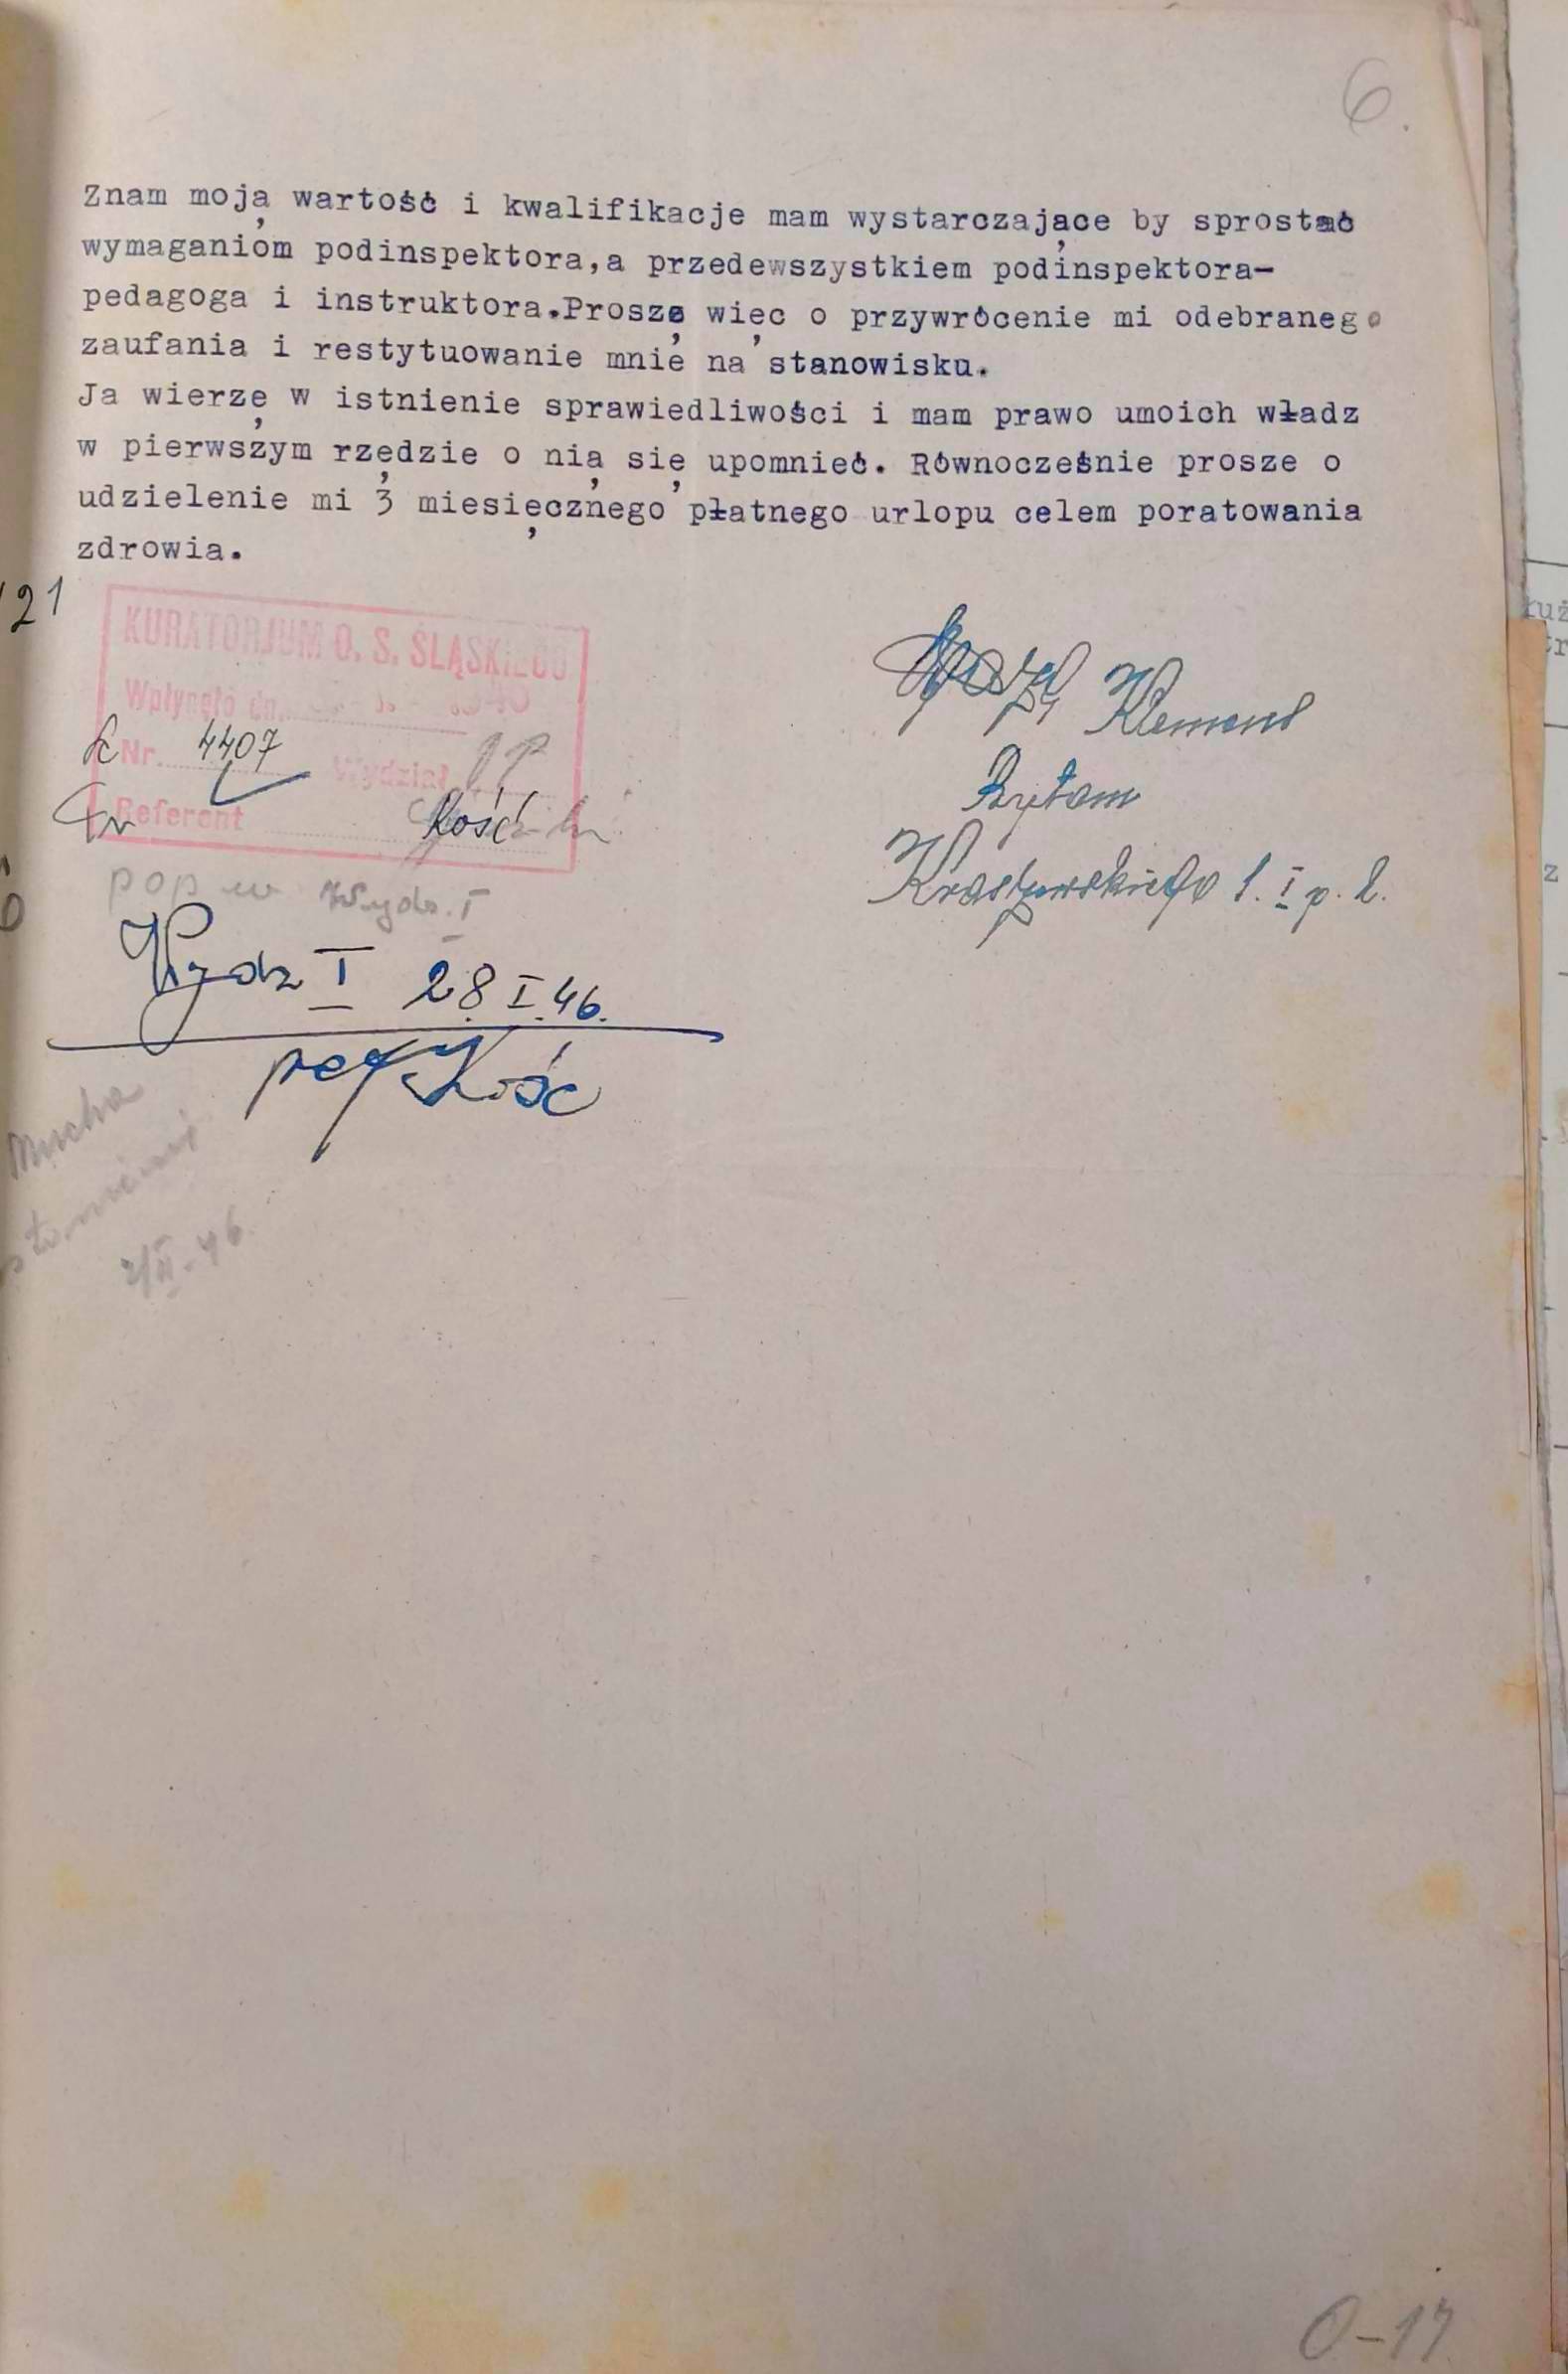 6.
Znam moją wartość i kwalifikacje mam wystarczające by sprostać
wymaganióm podinspektora,a przedewszystkiem podinspektora-
pedagoga i instruktora.Proszę więc o przywrócenie mi odebranego
zaufania i restytuowanie mnie na stanowisku.
Ja wierzę w istnienie sprawiedliwości i mam prawo umoich władz
w pierwszym rzędzie o nią się upomnieć. Równocześnie prosze o
udzielenie mi 3 miesięcznego płatnego urlopu celem poratowania
zdrowia.
21
KURATORJUM O. S. ŚLĄSKIEGO
Wpłynęło dn.
Nr. 4407 Wydział
Referent Kość
Klemens
Bytom
Kraszewskiego 1. I p. 2.
pop w Wydz. I
Wydz I 28 I.46.
Kość
Mucha
2/II-46.
O-17